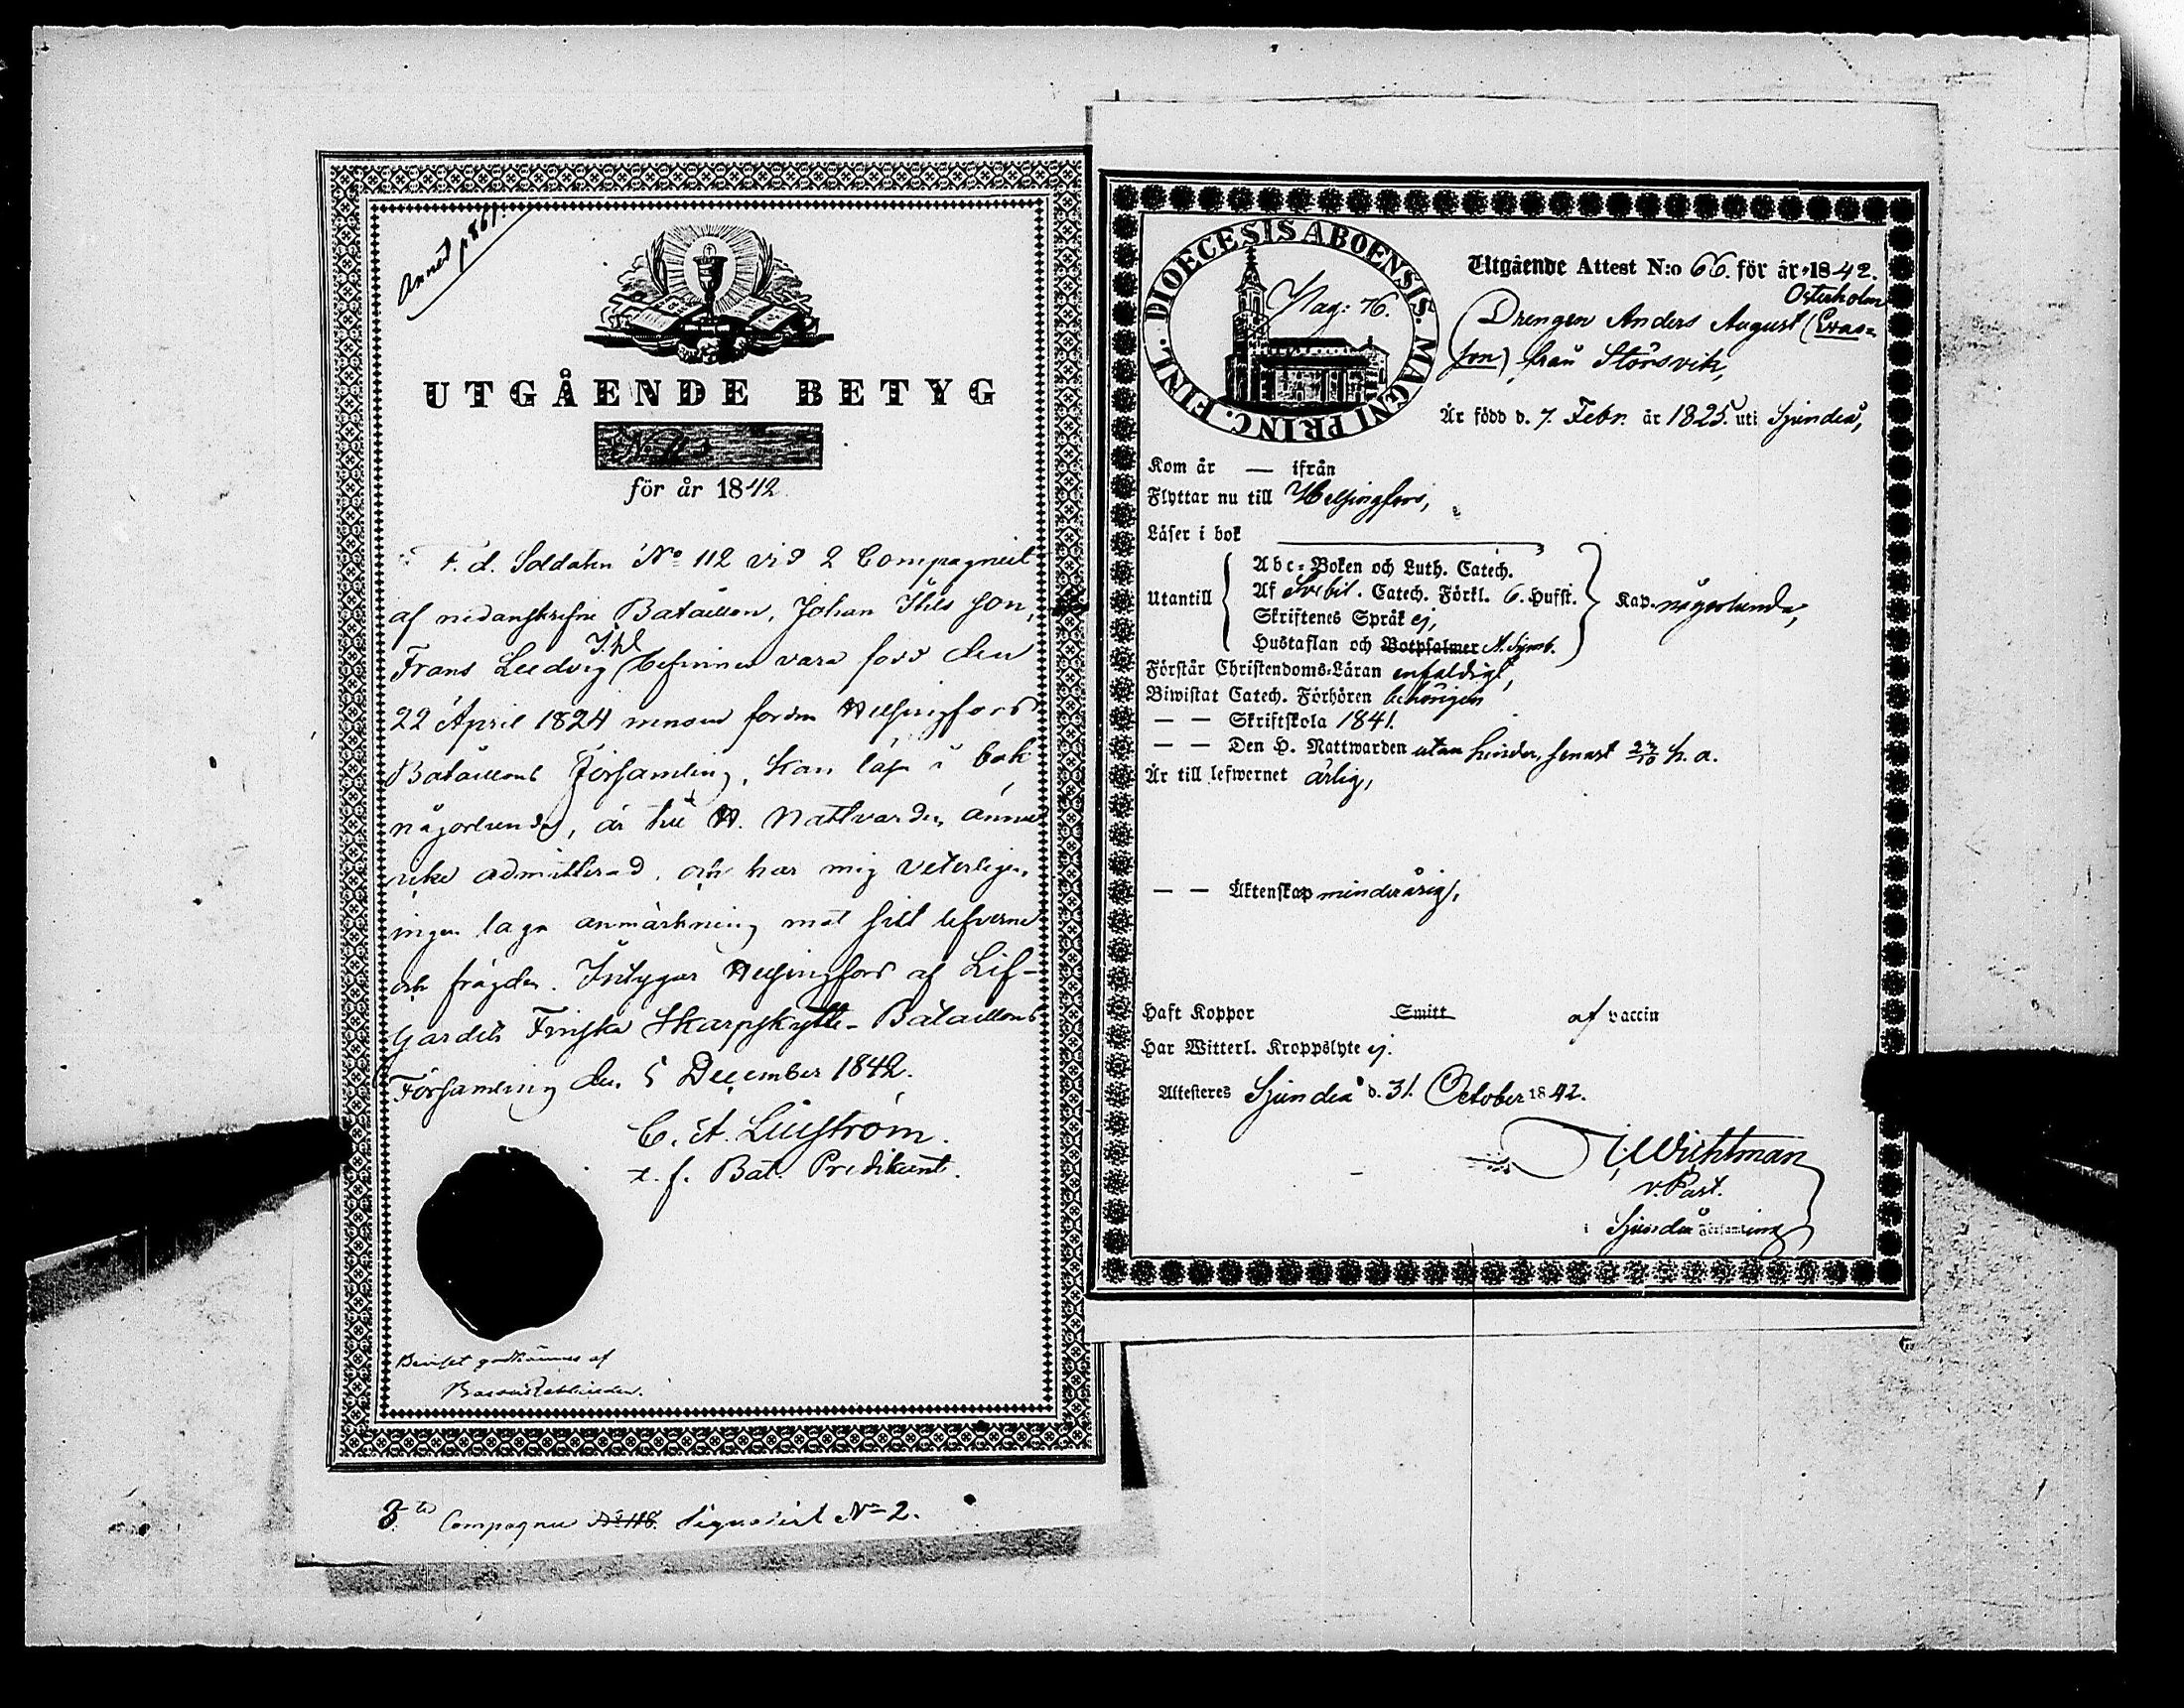 Annot p 861.
UTGÅENDE BETYG
No
för år 1842
F. d. Soldaten No 112 vid 2 Compagniet
af nedanskrifne Bataillon, Johan Ihls son,
Ihl
Frans Ludvig befinnes vara född den
22 April 1824 inom fordna Helsingfors
Bataillons Församling, kan läsa i bok
någorlunda, är till H. Nattvarden ännu
icke admitterad, och har mig veterligen
ingen laga anmärkning mot sitt lefverne
och frägder. Intygar Helsingfors af Lif-
Gardets Finska Skarpskytte-Bataillons
Församling den 5 December 1842.
C. A. Liljström.
t. f. Bat. Predikant.
Beviset godkännes af
3. Compagnie No 118. Signalist No 2.
DIOECESIS ABOENSIS. MAGNI PRINC. FINL.
Pag: 76.
Utgående Attest N:o 66. för år 1842.
Österholm
Drengen Anders August (Eras-
son) från Störsvik,
Är född d. 7. Febr. år 1825. uti Sjundeå,
Kom år — ifrån
Flyttar nu till Helsingfors,
Läser i bok
Utantill
Abc-Boken och Luth. Catech.
Af Svebil. Catech. Förkl. 6. Hufst.
Skriftenes Språk ej,
Hustaflan och Botpsalmer A. Symb.
Kap. någorlunda,
Förstår Christendoms-Läran enfaldigt,
Biwistat Catech. Förhören behörigen
— — Skriftskola 1841.
— — Den H. Nattwarden utan hinder, senast 23/10 h. a.
Är till lefwernet ärlig,
— — Äktenskap minderårig,
Haft Koppor Smitt af vaccin
Har Witterl. Kroppslyte ej.
Attesteres Sjundeå d. 31. October 1842.
Wichtman
v. Past.
i Sjundeå Församling